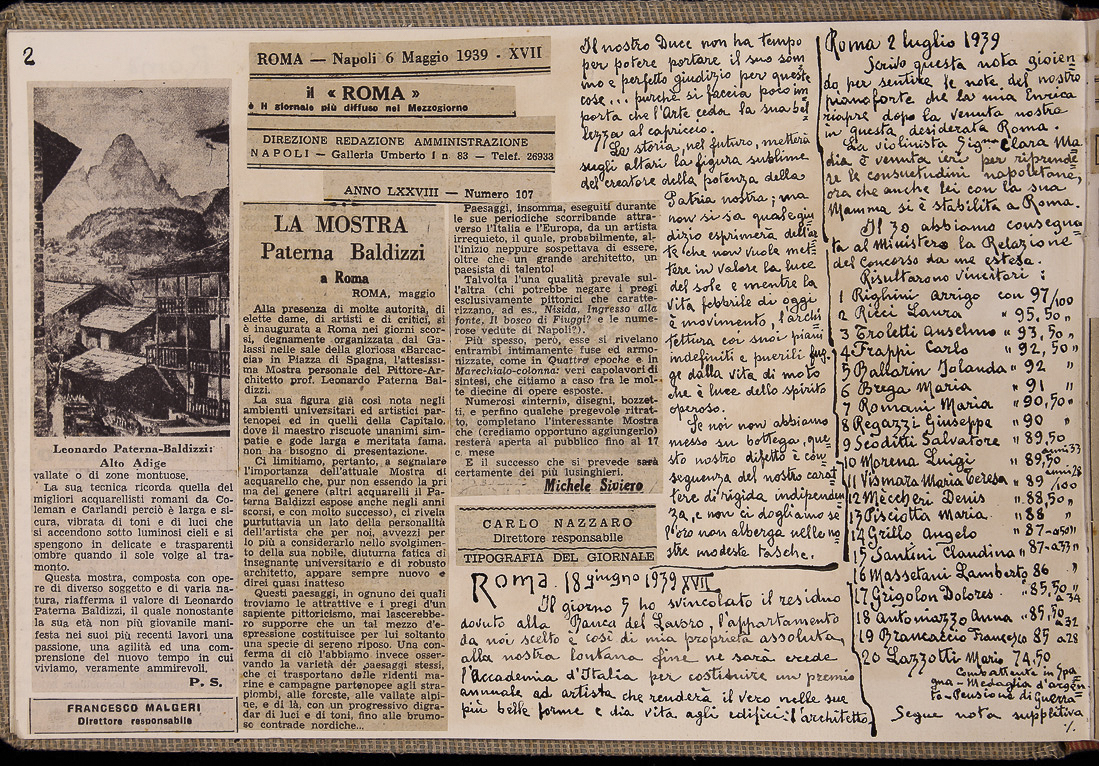 2
Leonardo Paterna-Baldizzi:
Alto Adige
vallate o di zone montuose.
La sua tecnica ricorda quella dei
migliori acquarellisti romani da Co-
leman e Carlandi perciò è larga e si-
cura, vibrata di toni e di luci che
si accendono sotto luminosi cieli e si
spengono in delicate e trasparenti
ombre quando il sole volge al tra-
monto.
Questa mostra, composta con ope-
re di diverso soggetto e di varia na-
tura, riafferma il valore di Leonardo
Paterna Baldizzi, il quale nonostante
la sua età non più giovanile mani-
festa nei suoi più recenti lavori una
passione, una agilità ed una com-
prensione del nuovo tempo in cui
viviamo, veramente ammirevoli.
P. S.
FRANCESCO MALGERI
Direttore responsabile
ROMA — Napoli 6 Maggio 1939 - XVII
il « ROMA »
è il giornale più diffuso nel Mezzogiorno
DIREZIONE REDAZIONE AMMINISTRAZIONE
NAPOLI - Galleria Umberto I n 83 - Telef. 26933
ANNO LXXVIII — Numero 107
LA MOSTRA
Paterna Baldizzi
a Roma
ROMA, maggio
Alla presenza di molte autorità, di
elette dame, di artisti e di critici, si
è inaugurata a Roma nei giorni scor-
si, degnamente organizzata dal Ga-
lassi nelle sale della gloriosa «Barcac-
cia» in Piazza di Spagna, l'attesissi-
ma Mostra personale del Pittore-Ar-
chitetto prof. Leonardo Paterna Bal-
dizzi.
La sua figura già così nota negli
ambienti universitari ed artistici par-
tenopei ed in quelli della Capitale.
dove il maestro riscuote unanimi sim-
patie e gode larga e meritata fama.
non ha bisogno di presentazione.
Ci limitiamo, pertanto, a segnalare
l'importanza dell'attuale Mostra di
acquarello che, pur non essendo la pri
ma del genere (altri acquarelli il Pa-
terna Baldizzi espose anche negli anni
scorsi, e con molto successo), ci rivela
purtuttavia un lato della personalità
dell'artista che per noi, avvezzi per
lo più a considerarlo nello svolgimen-
to della sua nobile, diuturna fatica di
insegnante universitario e di robusto
architetto, appare sempre nuovo e
direi quasi inatteso
Questi paesaggi, in ognuno dei quali
troviamo le attrattive e i pregi d'un
sapiente pittoricismo, mai lascerebbe-
ro supporre che un tal mezzo d'e-
spressione costituisce per lui soltanto
una specie di sereno riposo. Una con-
ferma di ciò l'abbiamo invece osser-
vando la varietà dei paesaggi stessi,
che ci trasportano dalle ridenti ma-
rine e campagne partenopee agli stra-
piombi, alle foreste, alle vallate alpi-
ne, e di là, con un progressivo digra-
dar di luci e di toni, fino alle brumo-
se contrade nordiche...
Paesaggi, insomma, eseguiti durante
le sue periodiche scorribande attra-
verso l'Italia e l'Europa, da un artista
irrequieto, il quale, probabilmente, al-
l'inizio neppure sospettava di essere,
oltre che un grande architetto, un
paesista di talento!
Talvolta l'una qualità prevale sul-
l'altra (chi potrebbe negare i pregi
esclusivamente pittorici che caratte-
rizzano, ad es., Nisida, Ingresso alla
fonte, Il bosco di Fiuggi? e le nume-
rose vedute di Napoli?).
Più spesso, però, esse si rivelano
entrambi intimamente fuse ed armo-
nizzate, come in Quattro epoche e in
Marechialo-colonna: veri capolavori di
sintesi, che citiamo a caso fra le mol-
te diecine di opere esposte.
Numerosi «interni», disegni, bozzet-
ti, e perfino qualche pregevole ritrat-
to, completano l'interessante Mostra
che (crediamo opportuno aggiungerlo)
resterà aperta al pubblico fino al 17
c. mese
E il successo che si prevede sarà
certamente dei più lusinghieri.
Michele Siviero
CARLO NAZZARO
Direttore responsabile
TIPOGRAFIA DEL GIORNALE
Roma. 18 giugno 1939 XVII
Il giorno 5 ho svincolato il residuo
dovuto alla Banca del Lavoro, l'appartamento
da noi scelto è così di mia proprietà assoluta,
alla nostra lontana fine ne sarà erede
l'Accademia d'Italia per costituire un premio
annuale ad artista che renderà il vero nelle sue
più belle forme e dia vita agli edifici: l'architetto
Il nostro Duce non ha tempo
per potere portare il suo som
mo e perfetto giudizio per queste
cose... purché si faccia poco im
porta che l'Arte ceda la sua bel
lezza al capriccio.
La storia, nel futuro, metterà
sugli altari la figura sublime
del creatore della potenza della
Patria nostra; ma
non si sa quale giu
dizio esprimerà dell'ar
te che non vuole met
tere in valore la luce
del sole e mentre la
vita febbrile di oggi
è movimento, l'archi
tettura coi suoi piani
indefiniti e puerili fug
ge dalla vita di moto
che è luce dello spirito
operoso.
Se noi non abbiamo
messo su bottega, que
sto nostro difetto è con
seguenza del nostro carat
tere di rigida indipenden
za, e non ci dogliamo se
l'oro non alberga nelle no
stre modeste tasche.
Roma 2 luglio 1939
Scrivo questa nota gioien
do per sentire le note del nostro
pianoforte che la mia Enrica
riapre dopo la venuta nostra
in questa desiderata Roma.
La violinista Sig.na Clara Ma
dia è venuta ieri per riprende
re le consuetudini napoletane,
ora che anche lei con la sua
Mamma si è stabilita a Roma.
Il 30 abbiamo consegna
ta al Ministero la Relazione
del concorso da me estesa.
Risultarono vincitori:
1 Righini Arrigo con 97/100
2 Ricci Laura " 95,50 "
3 Troletti Anselmo " 93,50 "
4 Frappi Carlo " 92,50 "
5 Ballarin Jolanda " 92 "
6 Brega Maria " 91 "
7 Romani Maria " 90,50 "
8 Regazzi Giuseppe " 90 "
9 Scoditti Salvatore " 89,50 anni 33
10 Morena Luigi " 89,50 anni 28
11 Vismara Maria Teresa " 89 /100
12 Meccheri Denis " 88,50 "
13 Pisciotta Maria " 88 "
14 Grillo Angelo " 87 - a 50
15 Santini Claudina " 87 - a 33
16 Massetani Lamberto 86 "
17 Grigolon Dolores " 85,50 a 34
18 Antomazzo Anna " 85,50 a 32
19 Brancaccio Francesco 85 a 28
20 Lazzotti Mario 74,50
Combattente in Spa
gna - Medaglia d'argen
to - Pensione di Guerra
Segue nota suppletiva
./.